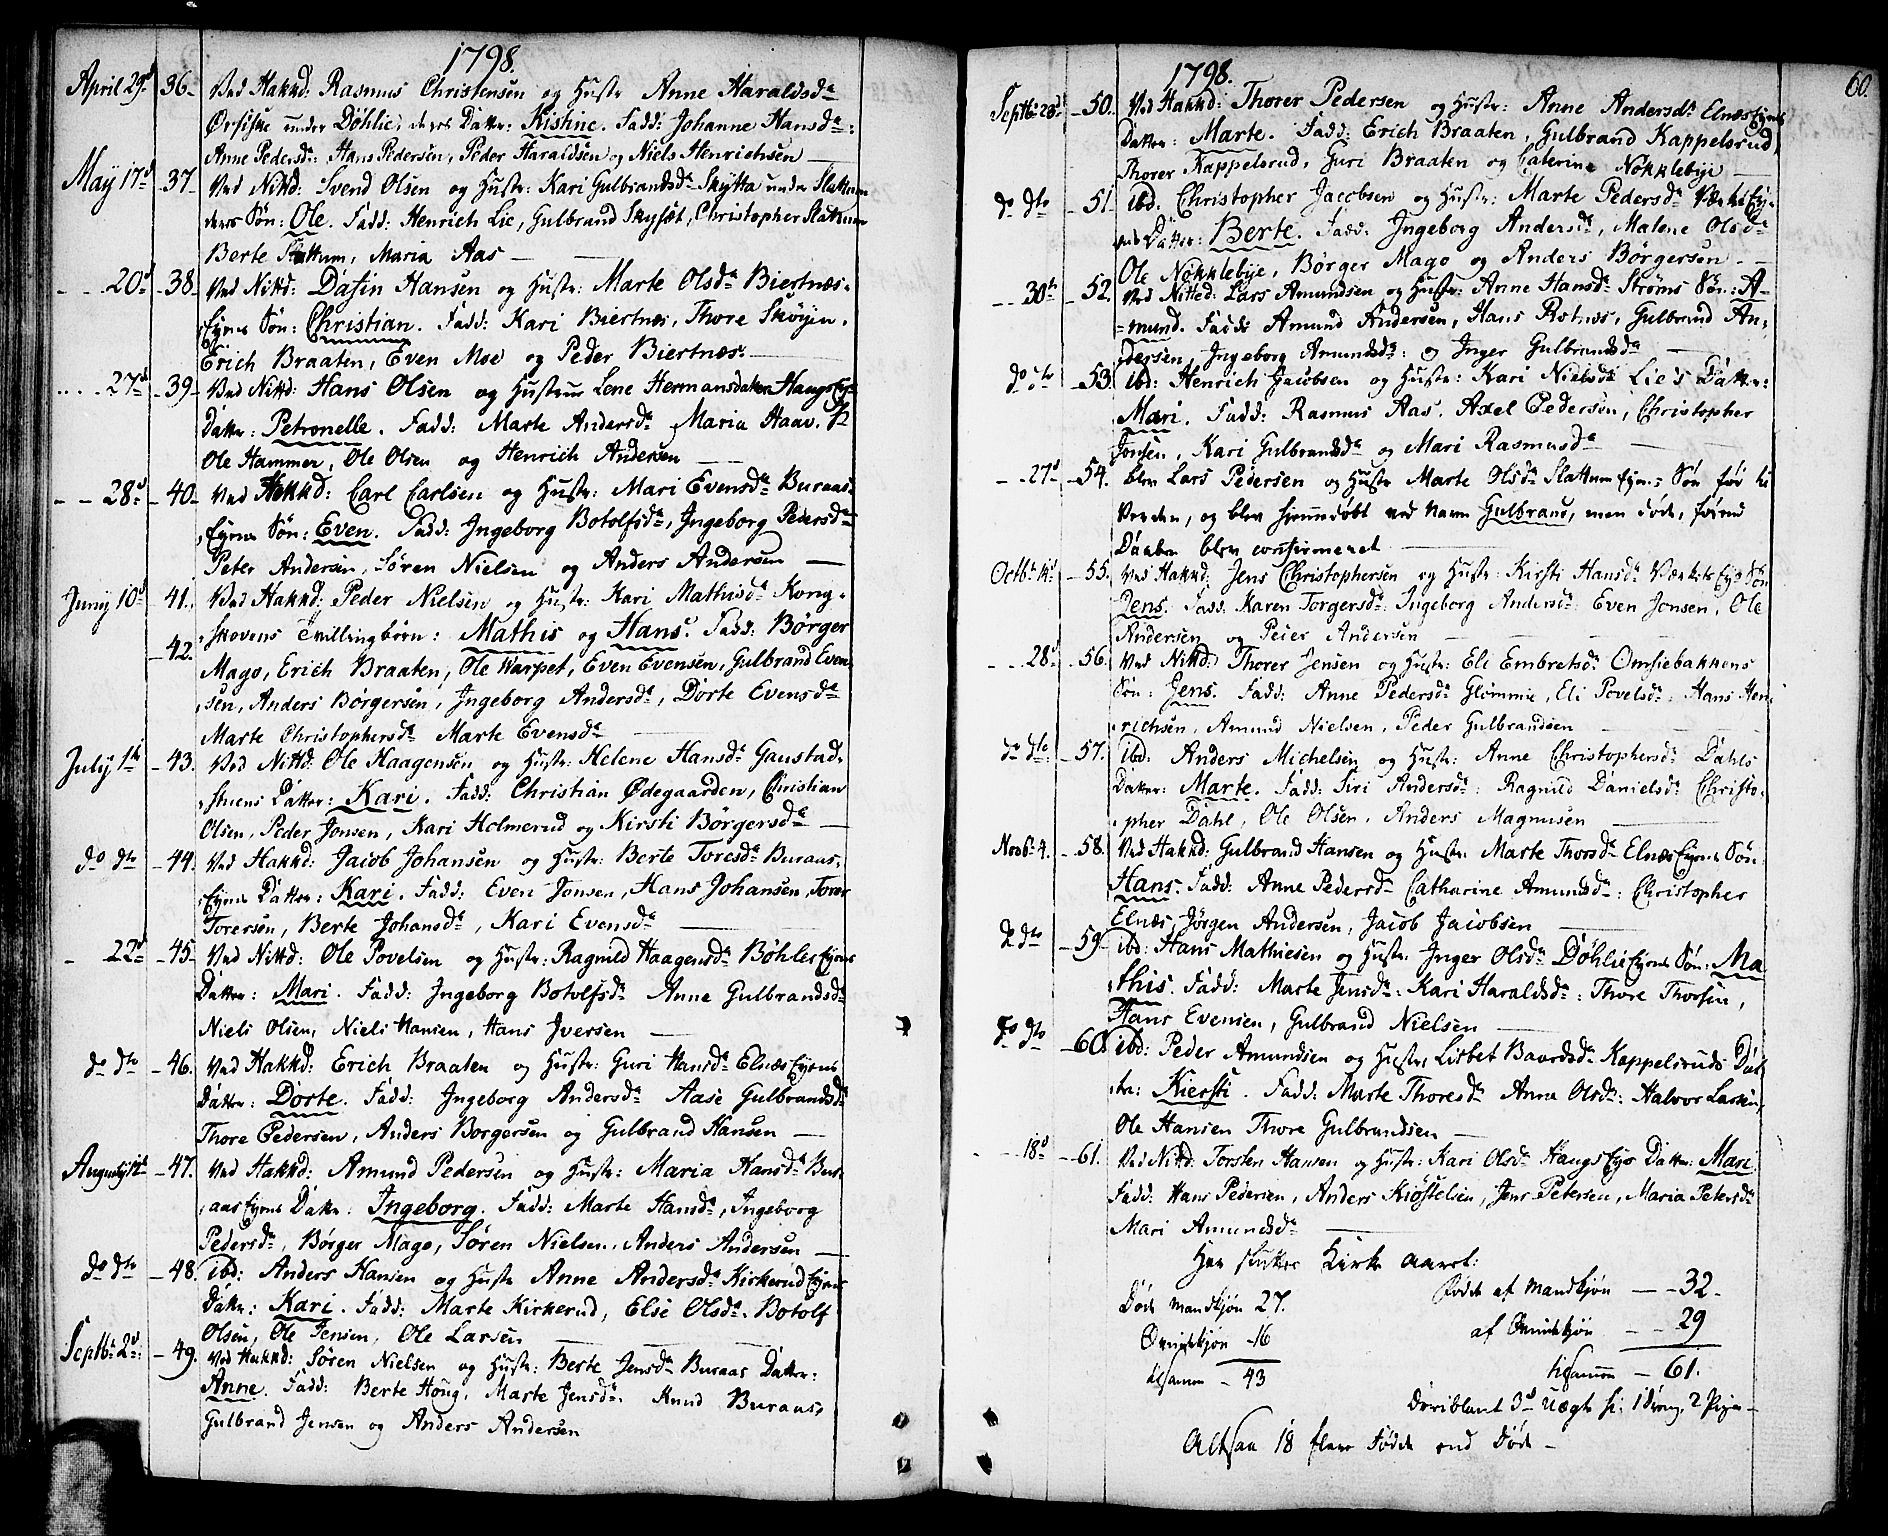 1798.
April 29d 36. Ved Hakkd: Rasmus Christensen og Hustr Anne Haraldsdr
under Døhlie, deres Datter: Kistine. Fadd: Johanne Hansdr:
Anne Pedersdr: Hans Pedersen, Peder Haraldsen og Niels Henrichsen
May 17d 37. Ved Nittd: Svend Olsen og Hustr: Kari Gulbrandsdr Skytta under Slattum
deres Søn: Ole. Fadd: Henrich Lie, Gulbrand Skysæt, Christopher Slattum
Berte Slattum, Maria Aas
20d 38. Ved Nittd: Dafin Hansen og Hustr: Marte Olsdr Biertnæs-
Eyens Søn: Christian. Fadd: Kari Biertnæs, Thore Skøyen,
Erich Braaten, Even Moe og Peder Biertnæs.
27d 39. Ved Nittd: Hans Olsen og Hustrue Lene Hermansdatter Haugs Ey:
Datter: Petronelle. Fadd: Marte Andersdr Maria Haav.
Ole Hammer, Ole Olsen og Henrich Andersen
28d 40. Ved Hakkd: Carl Carlsen og Hustr: Mari Evensdr Buraas-
Eyens Søn: Even. Fadd: Ingeborg Botolfsdr, Ingeborg Pedersdr
Peter Andersen, Søren Nielsen og Anders Andersen
Juny 10d 41. Ved Hakkd: Peder Nielsen og Hustr: Kari Mathisdr Kong-
42. skovens Tvillingbørn: Mathis og Hans. Fadd: Børger
Mago, Erich Braaten, Ole Warpet, Even Evensen, Gulbrand Even-
sen, Anders Børgersen, Ingeborg Andersdr, Dorte Evensdr
Marte Christophersdr Marte Evensdr
July 1ste 43. Ved Nittd: Ole Haagensen og Hustr: Helene Hansdr Gaustad-
stuens Datter: Kari. Fadd: Christian Ødegaarden, Christian
Olsen, Peder Jonsen, Kari Holmerud og Kirsti Børgersdr
do dto 44. Ved Hakkd: Jacob Johansen og Hustr: Berte Toresdr Buraas-
Eyens Datter: Kari. Fadd: Even Jonsen, Hans Johansen, Torer
Torersen, Berte Johansdr, Kari Evensdr
22d 45. Ved Nittd: Ole Povelsen og Hustr: Ragnild Haagensdr Bøhler Eyens
Datter: Mari. Fadd: Ingeborg Botolfsdr Anne Gulbrandsdr
Niels Olsen, Niels Hansen, Hans Iversen
do dto 46. Ved Hakkd: Erich Braaten og Hustr: Guri Hansdr Elnæs Eyens
Datter: Dorte. Fadd: Ingeborg Andersdr Aase Gulbrandsdr
Thore Pedersen, Anders Borgersen og Gulbrand Hansen
47. Ved Hakkd: Amund Pedersen og Hustr: Maria Hansdr Bur-
aas Eyens Datter: Ingeborg. Fadd: Marte Hansdr, Ingeborg
Pedersdr, Børger Mago, Søren Nielsen, Anders Andersen
do dto 48. ibd: Anders Hansen og Hustr Anne Andersdr Kirkerud Eyens
Datter: Kari. Fadd: Marte Kirkerud, Else Olsdr. Botolf
Olsen, Ole Jensen, Ole Larsen
Septbr 2d: 49. Ved Hakkd: Søren Nielsen og Hustr: Berte Jensdr Buraas Datter:
Anne. Fadd: Berte Høug, Marte Jensdr. Knud Buraas,
Gulbrand Jensen og Anders Andersen
1798.
60.
Septbr 23d 50. Ved Hakkd: Thorer Pedersen og Hustr: Anne Andersdr Elnæs Eyens
Datter: Marte. Fadd: Erich Braaten, Gulbrand Kappelsrud,
Thorer Kappelsrud, Guri Braaten og Caterine Nøkklebye
do dto 51. ibd: Christopher Jacobsen og Hustr: Marte Pedersdr
Datter: Berte. Fadd: Ingeborg Andersdr, Malene Olsdr
Ole Nøkklebye, Børger Mago og Anders Børgersen
30te 52. Ved Nitted: Lars Amundsen og Hustr: Anne Hansdr Strøms Søn: A-
mund. Fadd: Amund Andersen, Hans Rotnæs, Gulbrand An-
dersen, Ingeborg Amundsdr: og Inger Gulbrandsdr
do dto 53. ibd: Henrich Jacobsen og Hustr: Kari Nielsdr Lie's Datter:
Mari. Fadd: Rasmus Aas. Axel Pedersen, Christopher
Jonsen, Kari Gulbrandsdr og Mari Rasmusdr
27d 54. blev Lars Pedersen og Hustr Marte Olsdr Slattum Eyens Søn før til
Verden, og blev hjemmedøbt ved Navn Gulbrand, men døde, førend
Daaben blev confirmeret
Octbr 14d 55. Ved Hakkd: Jens Christophersen og Hustr: Kirsti Hansdr Værkets Eye Søn
Jens. Fadd: Karen Torgersdr: Ingeborg Andersdr: Even Jonsen, Ole
Andersen og Peter Andersen
28d 56. Ved Nittd: Thorer Jensen og Hustr: Eli Embretsdr Omsiebakkens
Søn: Jens. Fadd: Anne Pedersdr Glømmie, Eli Povelsdr, Hans Hen-
richsen, Amund Nielsen, Peder Gulbrandsen
do dto 57. ibd: Anders Michelsen og Hustr: Anne Christophersdr Dahls
Datter: Marte. Fadd: Siri Andersdr: Ragnild Danielsdr Christo-
pher Dahl, Ole Olsen, Anders Magnusen
Novbr 4. 58. Ved Hakkd: Gulbrand Hansen og Hustr: Marte Thorsdr Elnæs Eyens Søn:
Hans. Fadd: Anne Pedersdr Catharine Amundsdr: Christopher
Elnæs, Jørgen Andersen, Jacob Jacobsen
do dto 59. ibd: Hans Mathiesen og Hustr: Inger Olsdr Døhlie Eyens Søn: Ma
this. Fadd: Marte Jensdr: Kari Haraldsdr: Thore Thorsen,
Hans Evensen, Gulbrand Nielsen
do dto 60. ibd: Peder Amundsen og Hustr: Lisbet Baardsdr Kappelsruds Dat-
ter: Kiersti. Fadd: Marte Thoresdr Anne Olsdr: Halvor Larsen,
Ole Hansen Thore Gulbrandsen
18d 61. Ved Nittd: Torsten Hansen og Hustr: Kari Olsdr Haugs Eye Datter: Mari.
Fadd: Hans Pedersen, Anders Kiøstelsen, Jens Petersen, Maria Petersdr
Mari Amundsdr
Her slutter Kirke aaret:
Døde Mandkjøn 27. Fødte af Mandkjøn 32
Qvindekjøn 16 af Qvindekjøn 29
tilsamen 43 tilsamen 61.
Deriblant 3d Uægte si: 1 Dreng, 2 Piger
Altsaa 18 flere Fødde end Døde